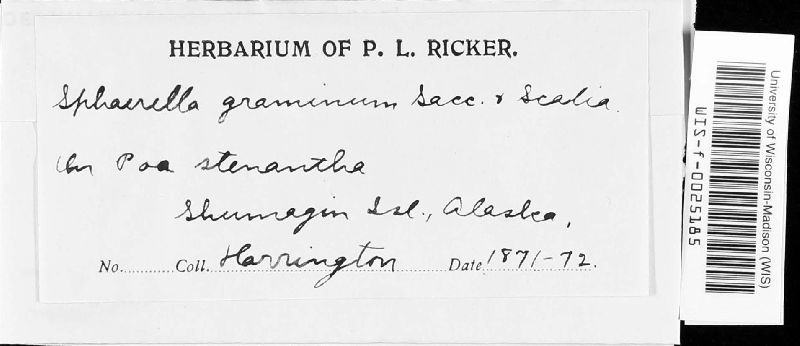 HERBARIUM OF P. L. RICKER.
Sphaerella graminum Sacc. & Scalia.
On Poa stenantha
Shumagin Isl., Alaska,
No. Coll. Harrington Date 1871-72.
University of Wisconsin-Madison (WIS)
WIS-f-0025185